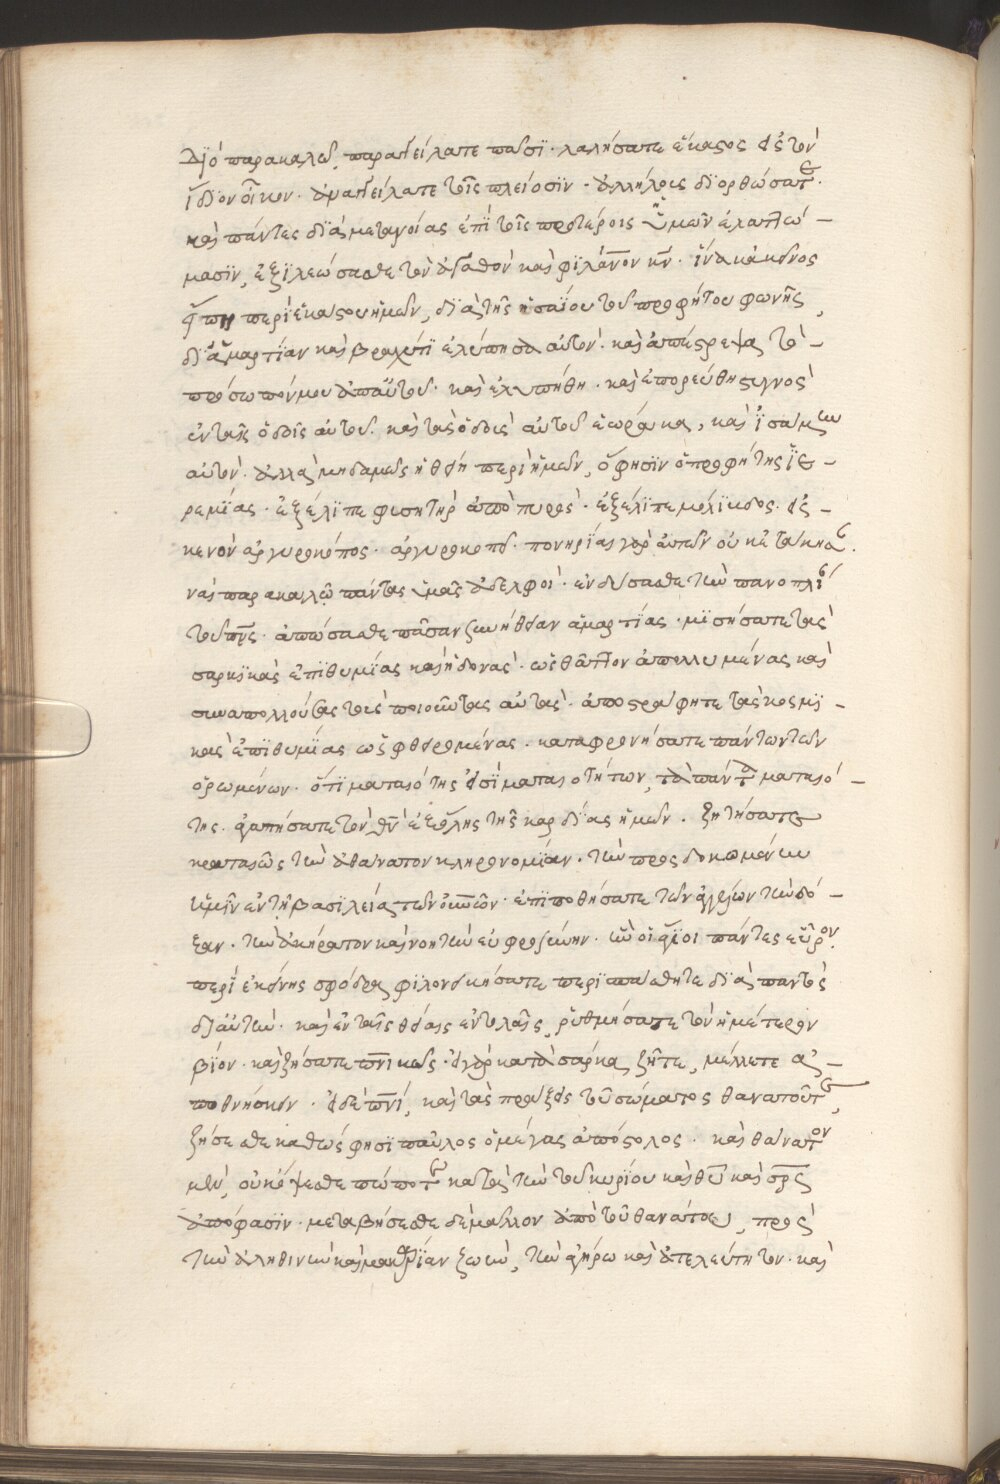 Διὸ παρακαλῶ, παραγγείλατε πᾶσι· λαλήσατε ἕκαστος εἰς τὸν
ἴδιον οἶκον· ἀναγγείλατε τοῖς πλείοσιν· ἀλλήλους διορθώσατε·
καὶ πάντες διὰ μετανοίας ἐπὶ τοῖς προτέροις ὑμῶν ἐλαττώ-
μασιν, ἐξιλεώσασθε τὸν ἀγαθὸν καὶ φιλάνον κν· ἵνα κἀκεῖνος
εἴπῃ περὶ ἑκάστου ἡμῶν, διὰ τῆς ἠσαΐου τοῦ προφήτου φωνῆς,
δι' ἁμαρτίαν καὶ βραχύ τι ἐλύπησα αὐτόν· καὶ ἀπέστρεψα τὸ-
πρόσωπόν μου ἀπ' αὐτοῦ· καὶ ἐλυπήθη· καὶ ἐπορεύθη στυγνὸς
ἐν ταῖς ὁδοῖς αὐτοῦ· καὶ τὰς ὁδοὺς αὐτοῦ ἑώρακα, καὶ ἰασάμην
αὐτόν· ἀλλὰ μηδαμῶς ἤθθη περὶ ἡμῶν, ὅ φησιν ὁ προφήτης ἰε-
ρεμίας· ἐξέλιπε φυσητὴρ ἀπὸ πυρός· ἐξέλιπε μόλιβδος· εἰς-
κενὸν ἀργυροκόπος· ἀργυροκοπεῖ· πονηρίας γὰρ αὐτῶν οὐκ ἐτάκησαν·
ναὶ παρακαλῶ πάντας ὑμᾶς ἀδελφοί· ἐνδύσασθε τὴν πανοπλίαν
τοῦ πνς· ἀπώσασθε πᾶσαν συνήθειαν ἁμαρτίας· μισήσατε τὰς
σαρκικὰς ἐπιθυμίας καὶ ἡδονὰς· ὡς θᾶττον ἀπολλυμένας καὶ
συναπολλούσας τοὺς ποιοῦντας αὐτάς· ἀποστράφητε τὰς κοσμι-
κὰς ἐπιθυμίας ὡς φθειρομένας· καταφρονήσατε πάντων τῶν
ὁρωμένων· ὅτι ματαιότης εἰσὶ ματαιοτήτων, τὰ πάντα ματαιό-
της· ἀγαπήσατε τὸν θν ἐξ ὅλης τῆς καρδίας ἡμῶν· ζητήσατε
κραταιῶς τὴν ἀθάνατον κληρονομίαν· τὴν προσδοκωμένην
ὑμῖν ἐν τῇ βασιλείᾳ τῶν οὐνῶν· ἐπιποθήσατε τῶν ἀγγέλων τὴν δό-
ξαν· τὴν ἀκήρατον καὶ νοητὴν εὐφροσύνην· ἣν οἱ ἅγιοι πάντες εὗρον·
περὶ ἐκείνης σφόδρα φιλονεικήσατε περιπαθῆτε διὰ παντὸς
δι' αὐτήν· καὶ ἐν ταῖς θείαις ἐντολαῖς, ῥυθμήσατε τὸν ἡμέτερον
βίον· καὶ ζήσατε πνικῶς· εἰ γὰρ κατὰ σάρκα ζῆτε, μέλλετε ἀ-
ποθνήσκειν· εἰ δὲ πνι, καὶ τὰς πράξεις τοῦ σώματος θανατοῦτε,
ζήσεσθε καθώς φησι παῦλος ὁ μέγας ἀπόστολος· καὶ θάνατον
μὲν, οὐκ ὄψεσθε πώποτε κατὰ τὴν τοῦ κυρίου καὶ θυ καὶ σρς
ἀπόφασιν· μεταβήσεσθε δὲ μᾶλλον ἀπὸ τοῦ θανάτου, πρὸς
τὴν ἀληθινὴν καὶ μακαρίαν ζωὴν, τὴν ἀγήρω καὶ ἀτελεύτητον· καὶ